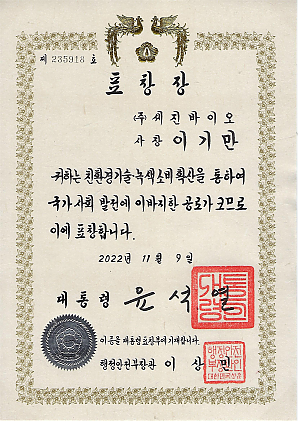 제 235918 호
표 창 장
(주)세진바이오
사장 이기만
귀하는 친환경기술·녹색소비 확산을 통하여
국가사회 발전에 이바지한 공로가 크므로
이에 표창합니다.
2022년 11월 9일
대통령 윤석열
이 증을 대통령표창부에 기재합니다.
행정안전부장관 이상민